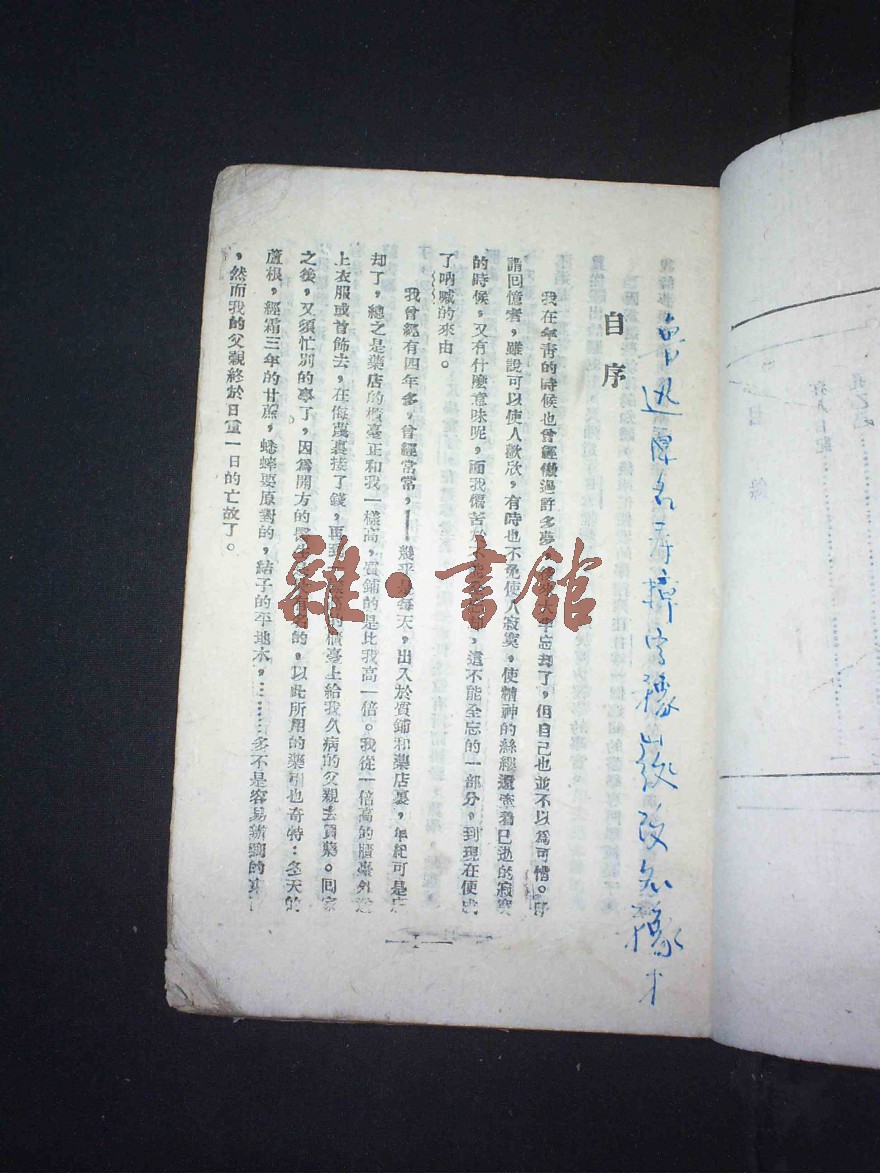 魯迅原名周樟寿字豫山後改豫才
自序
我在年靑的時候也曾經做過許多夢,大半忘却了,但自己也並不以爲可惜。所
謂回憶者,雖說可以使人歡欣,有時也不免使人寂寞,使精神的絲縷還牽着已逝的寂寞
的時候,又有什麼意味呢,而我偏苦於不能,這不能全忘的一部分,到現在便成
了吶喊的來由。
我曾經有四年多,曾經常常,——幾乎是每天,出入於質鋪和藥店裏,年紀可是忘
却了,總之是藥店的櫃臺正和我一樣高,質鋪的是比我高一倍。我從一倍高的櫃臺外送
上衣服或首飾去,在侮蔑裏接了錢,再到的櫃臺上給我久病的父親去買藥。回家
之後,又須忙別的事了,因爲開方的的,以此所用的藥引也奇特:冬天的
蘆根,經霜三年的甘蔗,蟋蟀要原對的,結子的平地木,……多不是容易辦到的東
,然而我的父親終於日重一日的亡故了。
一
雜·書館